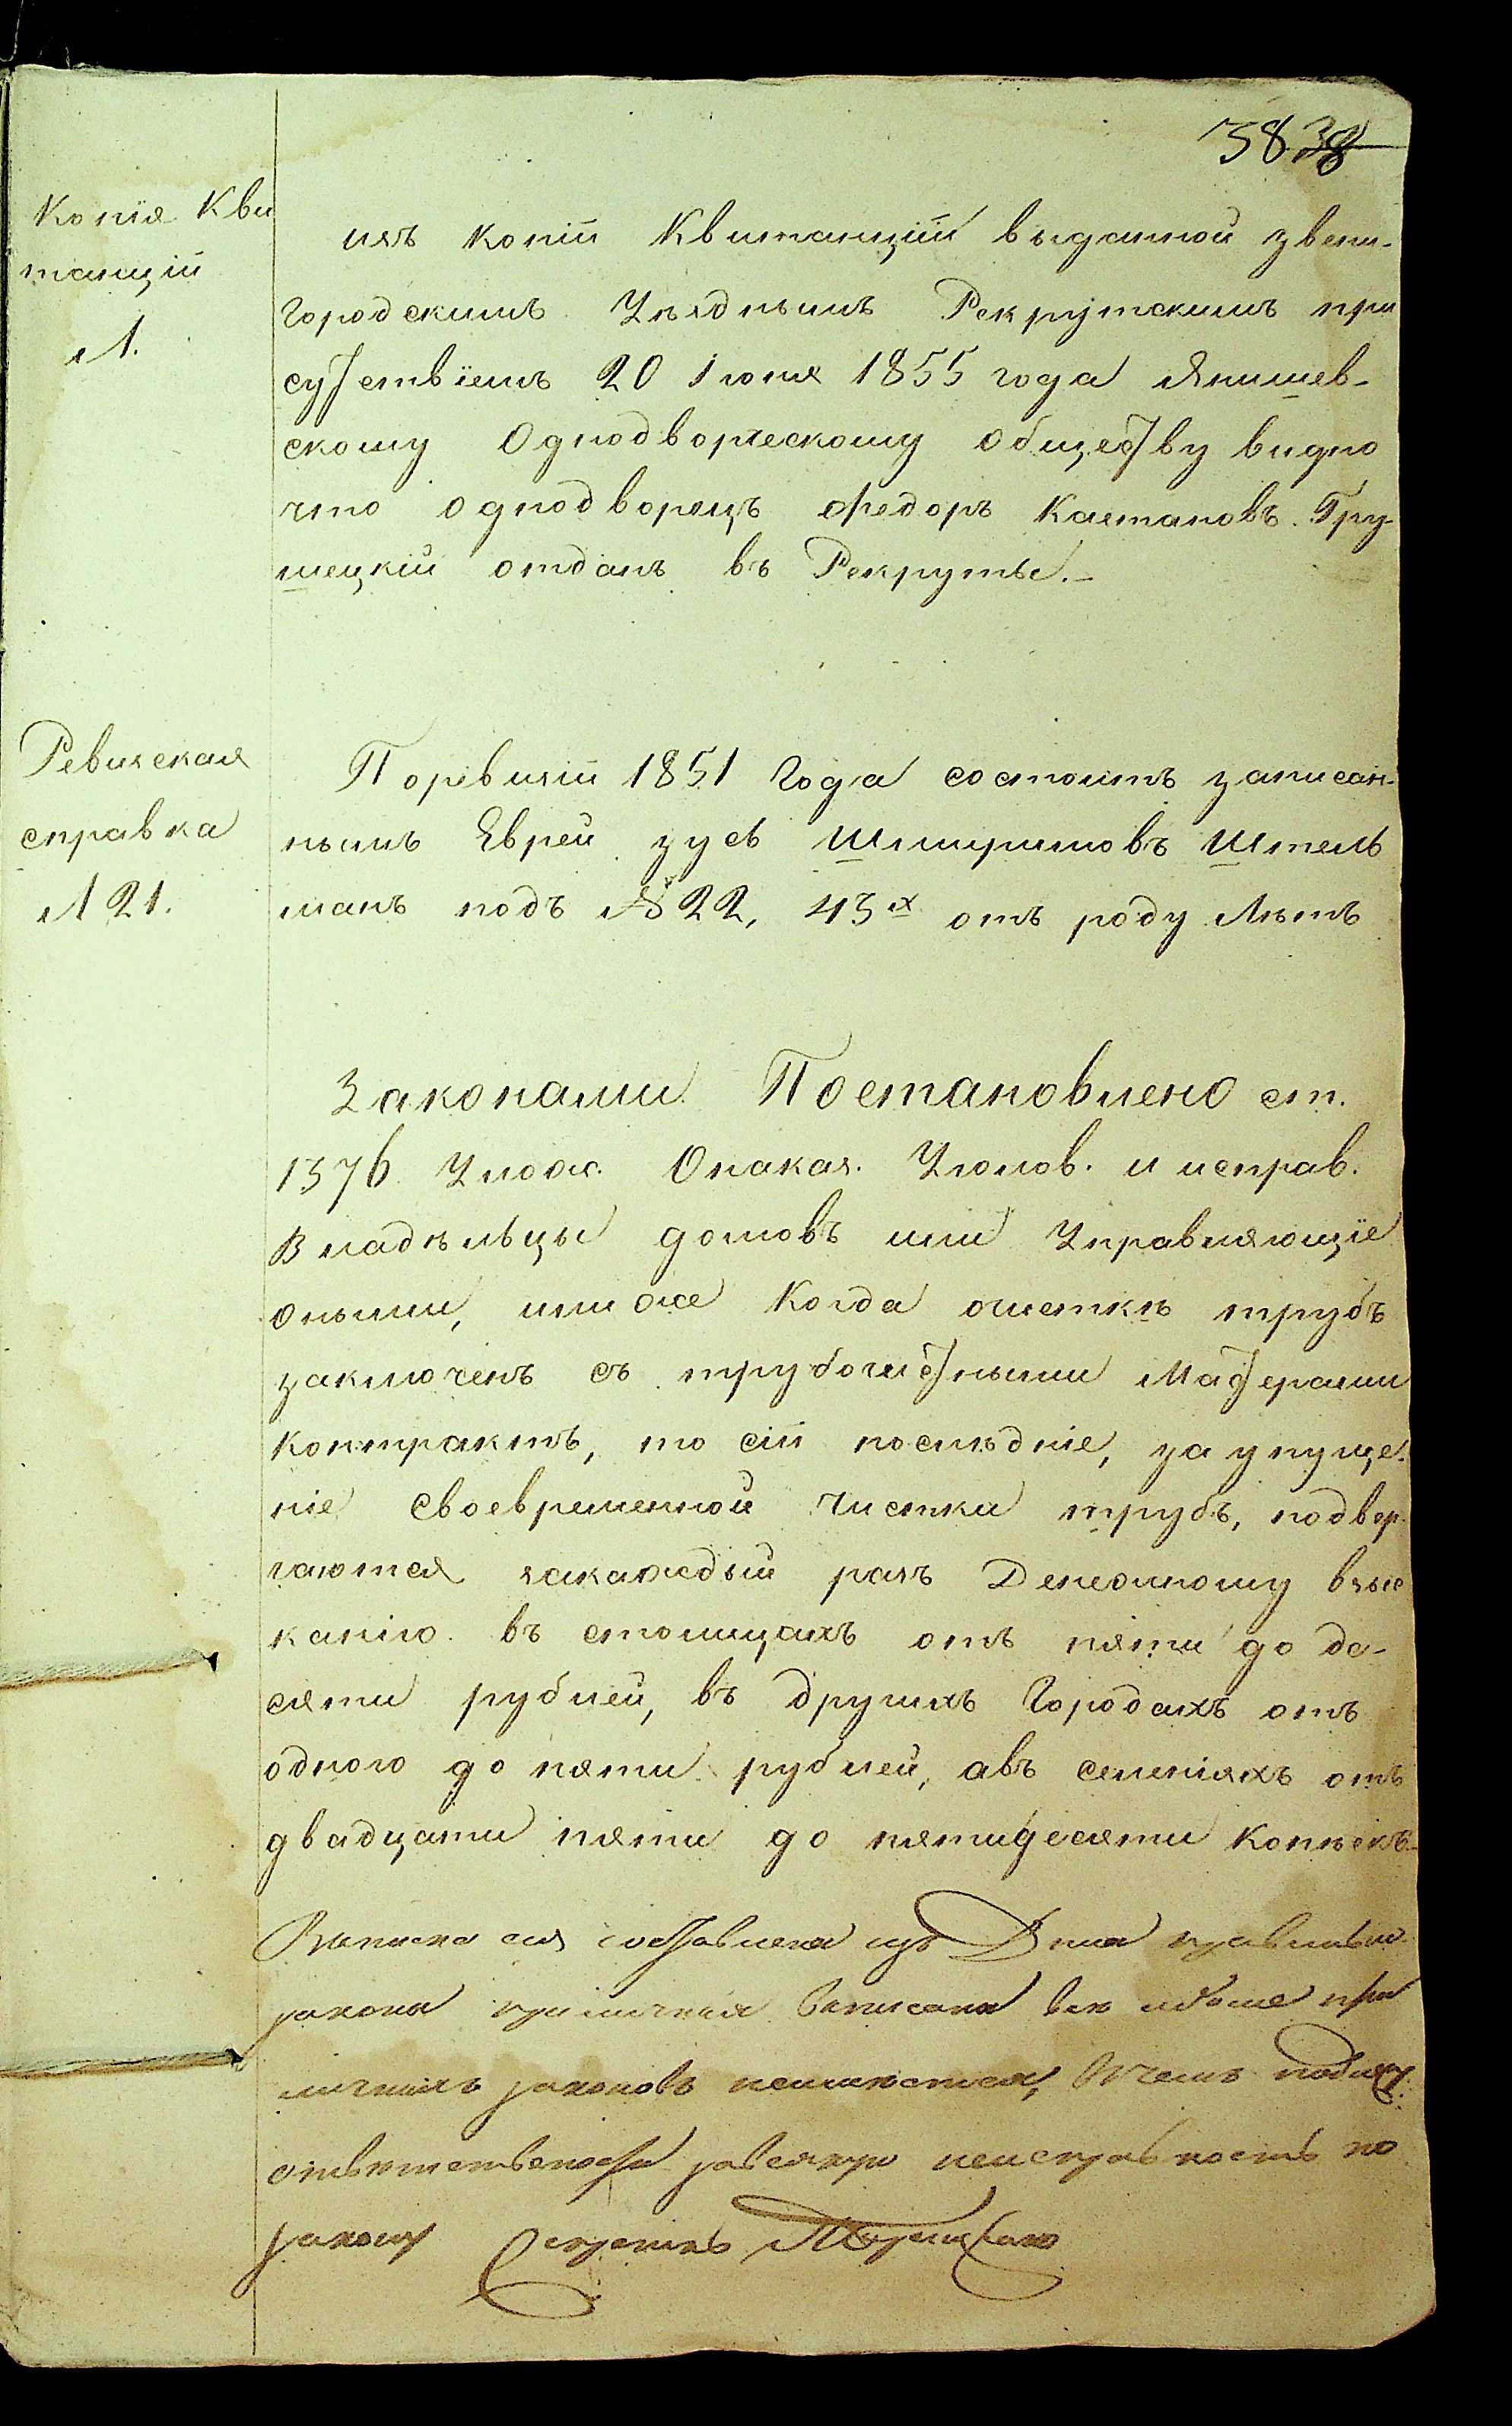 38 38
Копія Кви
танціи
Л.
изъ копіи Квитанціи выданной звени-
городскимъ Уѣзднымъ Рекрутскимъ при
сутствіемъ 20 Іюня 1855 года Янишев-
скому Однодворческому обществу видно
что однодворецъ Федоръ Каетановъ Гру-
шецкій отданъ въ Рекруты.-
Ревизская
справка
Л 21.
По ревизіи 1851 Года состоитъ записан-
нымъ Еврей зусь Шмириновъ Штель
манъ подъ № 22, 43х отъ роду Лѣтъ
Законами Постановлено ст.
1376 Улож. О наказ. Уголов. и исправ.
Владѣльцы домовъ или Управляющіе
оными, или же Когда очисткѣ трубъ
заключенъ съ трубочистными Мастерами
контрактъ, то сіи послѣдніе, за упуще-
ніе своевременной чистки трубъ, подвер-
гаются закаждый разъ Денежному взыс
канію въ столицахъ отъ пяти до де-
сяти рублей, въ другихъ Городахъ отъ
одного до пяти рублей, авъ селеніяхъ отъ
двадцати пяти до пятидесяти копѣекъ.-
Записка сія составлена изъ Дѣла правильно
закона приличныя Записаны болѣе при
личныхъ законовъ неимѣется, Вчемъ подлежу
отвѣтственности завсякую неисправность по
закону Секретарь